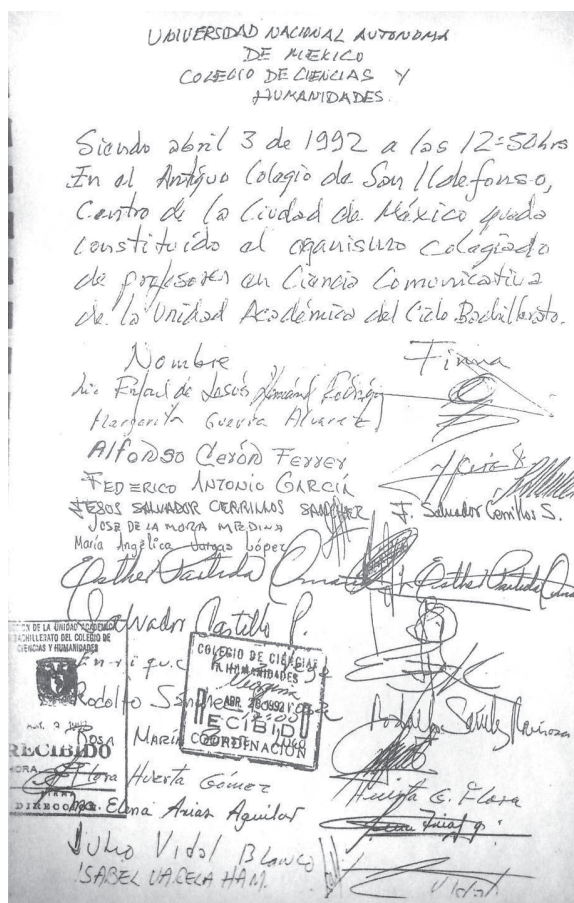 UNIVERSIDAD NACIONAL AUTONOMA
DE MEXICO
COLEGIO DE CIENCIAS Y
HUMANIDADES.
Siendo abril 3 de 1992 a las 12:50hrs
En el Antiguo Colegio de San Ildefonso,
Centro de la Ciudad de México queda
constituído el organismo colegiado
de profesores en Ciencia Comunicativa
de la Unidad Académica del Ciclo Bachillerato.
Nombre Firma
de Jesús
Margarita Guerra Alvarez
Alfonso Cerón Ferrer
FEDERICO ANTONIO GARCÍA
JESUS SALVADOR CERRILLOS SANCHEZ J. Salvador Cerrillos S.
JOSE DE LA MORA MEDINA
María Angélica Vargas López
Esther Partida Esther Partida
Salvador Castillo P.
Enrique
Rodolfo Rodolfo
ROSA MARÍA
Flora Huerta Gómez Huerta G. Flora
Ma. Elena Arias Aguilar
Julio Vidal Blanco Vidal
ISABEL VARELA HAM.
DE LA UNIDAD ACADEMICA
BACHILLERATO DEL COLEGIO DE
CIENCIAS Y HUMANIDADES
RECIBIDO
HORA
FIRMA
DIRECCION
COLEGIO DE CIENCIAS
Y HUMANIDADES
ABR. 28 1992
RECIBIDO
COORDINACION